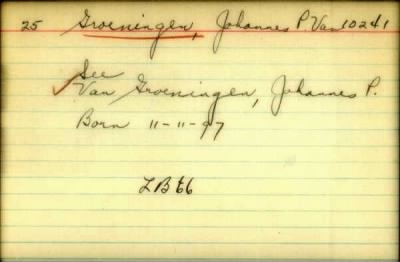 25 Groeningen, Johannes P. Van 10241
See
Van Groeningen, Johannes P.
Born 11-11-97